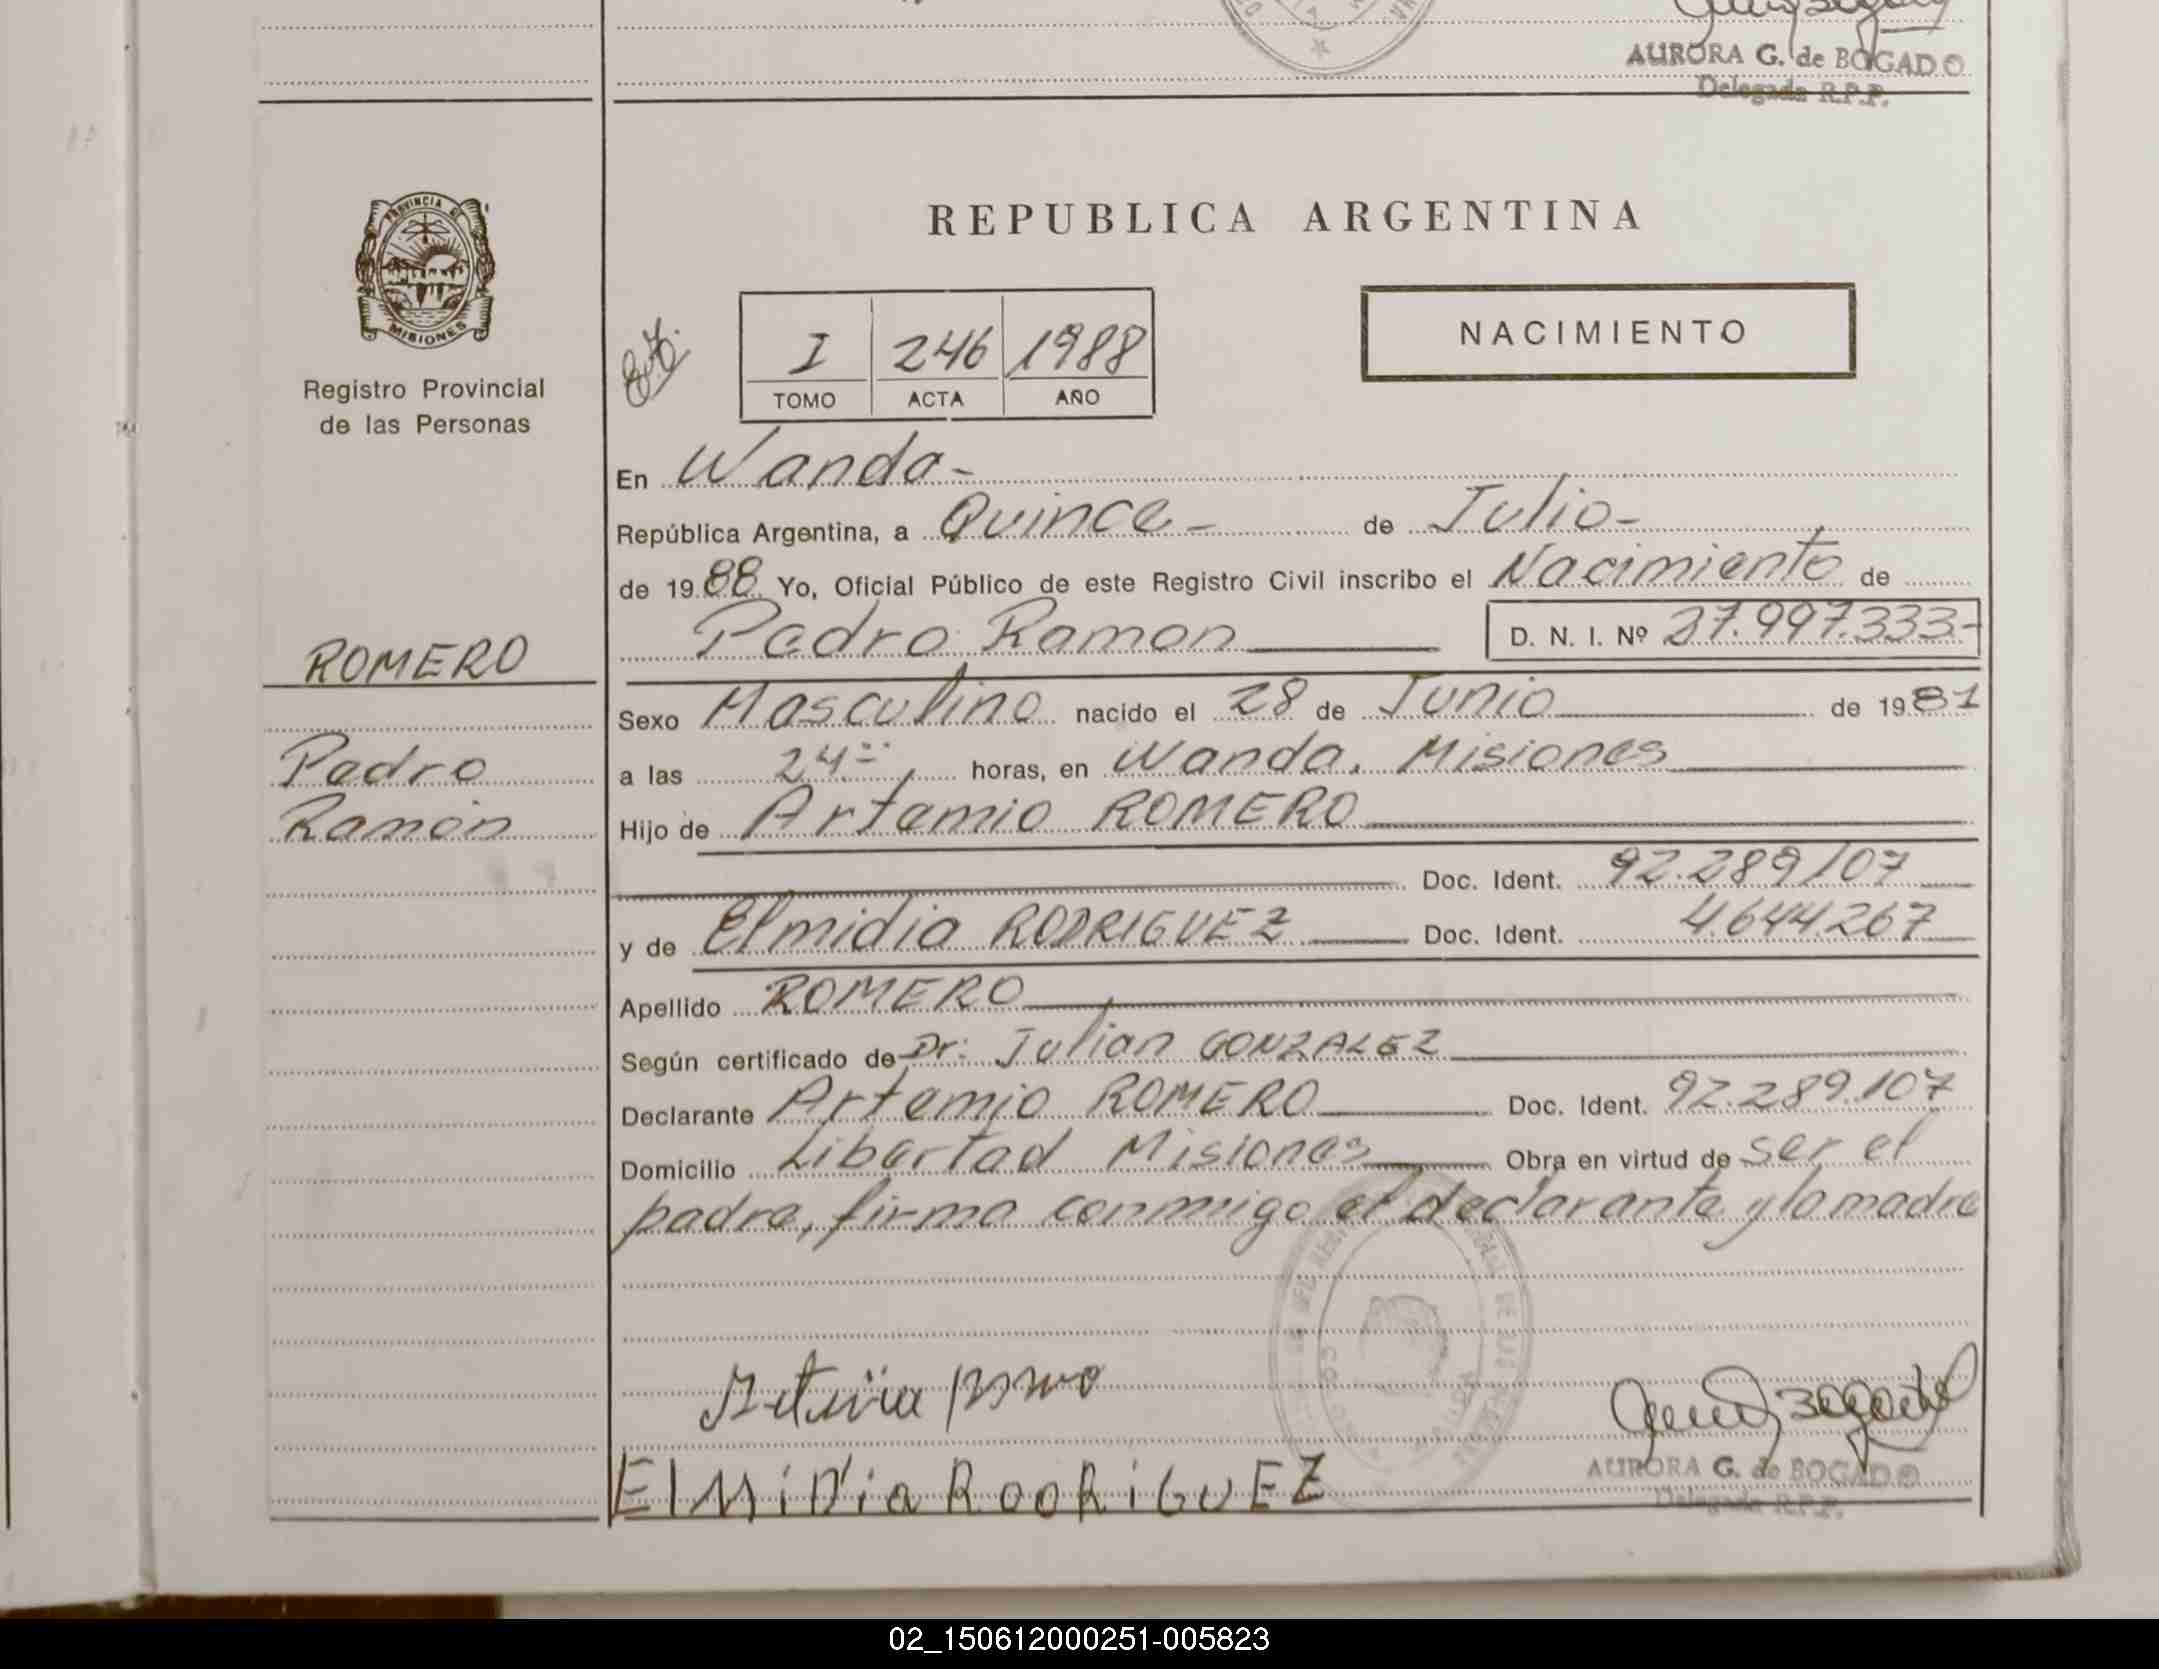 AURORA G. de BOGADO
Delegada R.P.P.
PROVINCIA DE
MISIONES
Registro Provincial
de las Personas
REPUBLICA ARGENTINA
NACIMIENTO
I 246 1988
TOMO ACTA AÑO
En Wanda-
República Argentina, a Quince- de Julio-
de 1988 Yo, Oficial Público de este Registro Civil inscribo el Nacimiento de
Pedro Ramon D. N. I. Nº 27.997.333-
ROMERO
Sexo Masculino nacido el 28 de Junio de 1981
Pedro
a las 24 horas, en Wanda, Misiones
Ramón
Hijo de Artemio ROMERO
Doc. Ident. 92.289107
y de Elmidia RODRIGUEZ Doc. Ident. 4644267
Apellido ROMERO
Según certificado de Dr: Julian GONZALEZ
Declarante Artemio ROMERO Doc. Ident. 92.289.107
Domicilio Libertad Misiones Obra en virtud de ser el
padre, firma conmigo el declarante y la madre
ElMiDia RooRiGuEZ
AURORA G. de BOGADO
Delegada R.P.P.
02_150612000251-005823